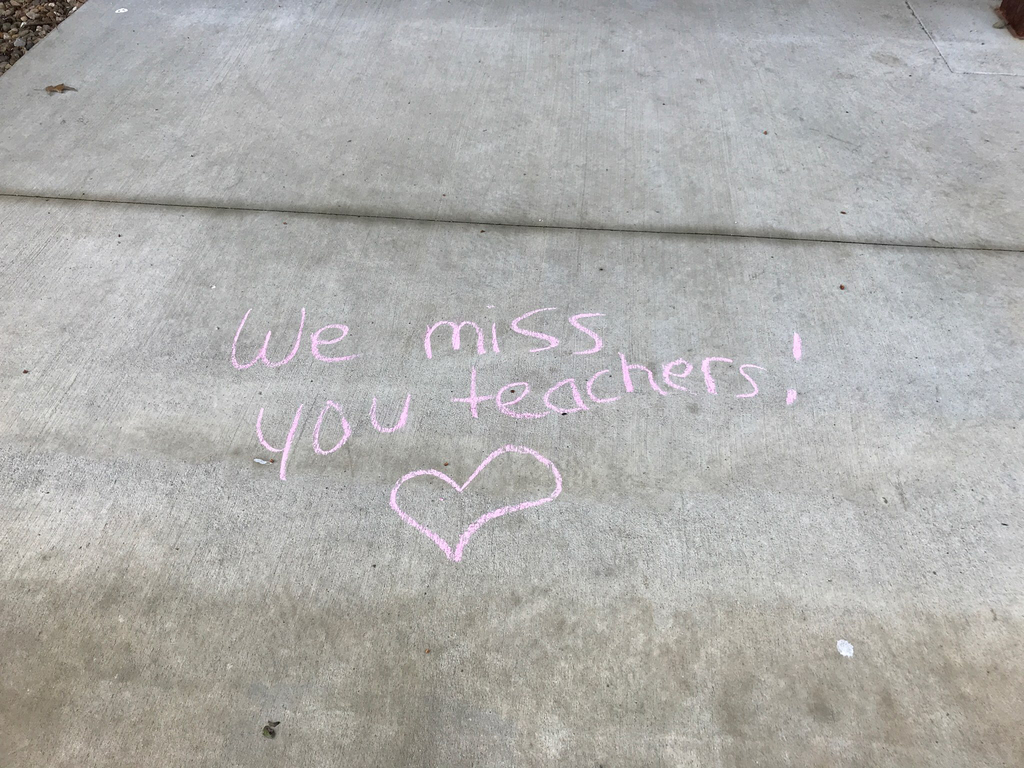 We miss
you teachers!